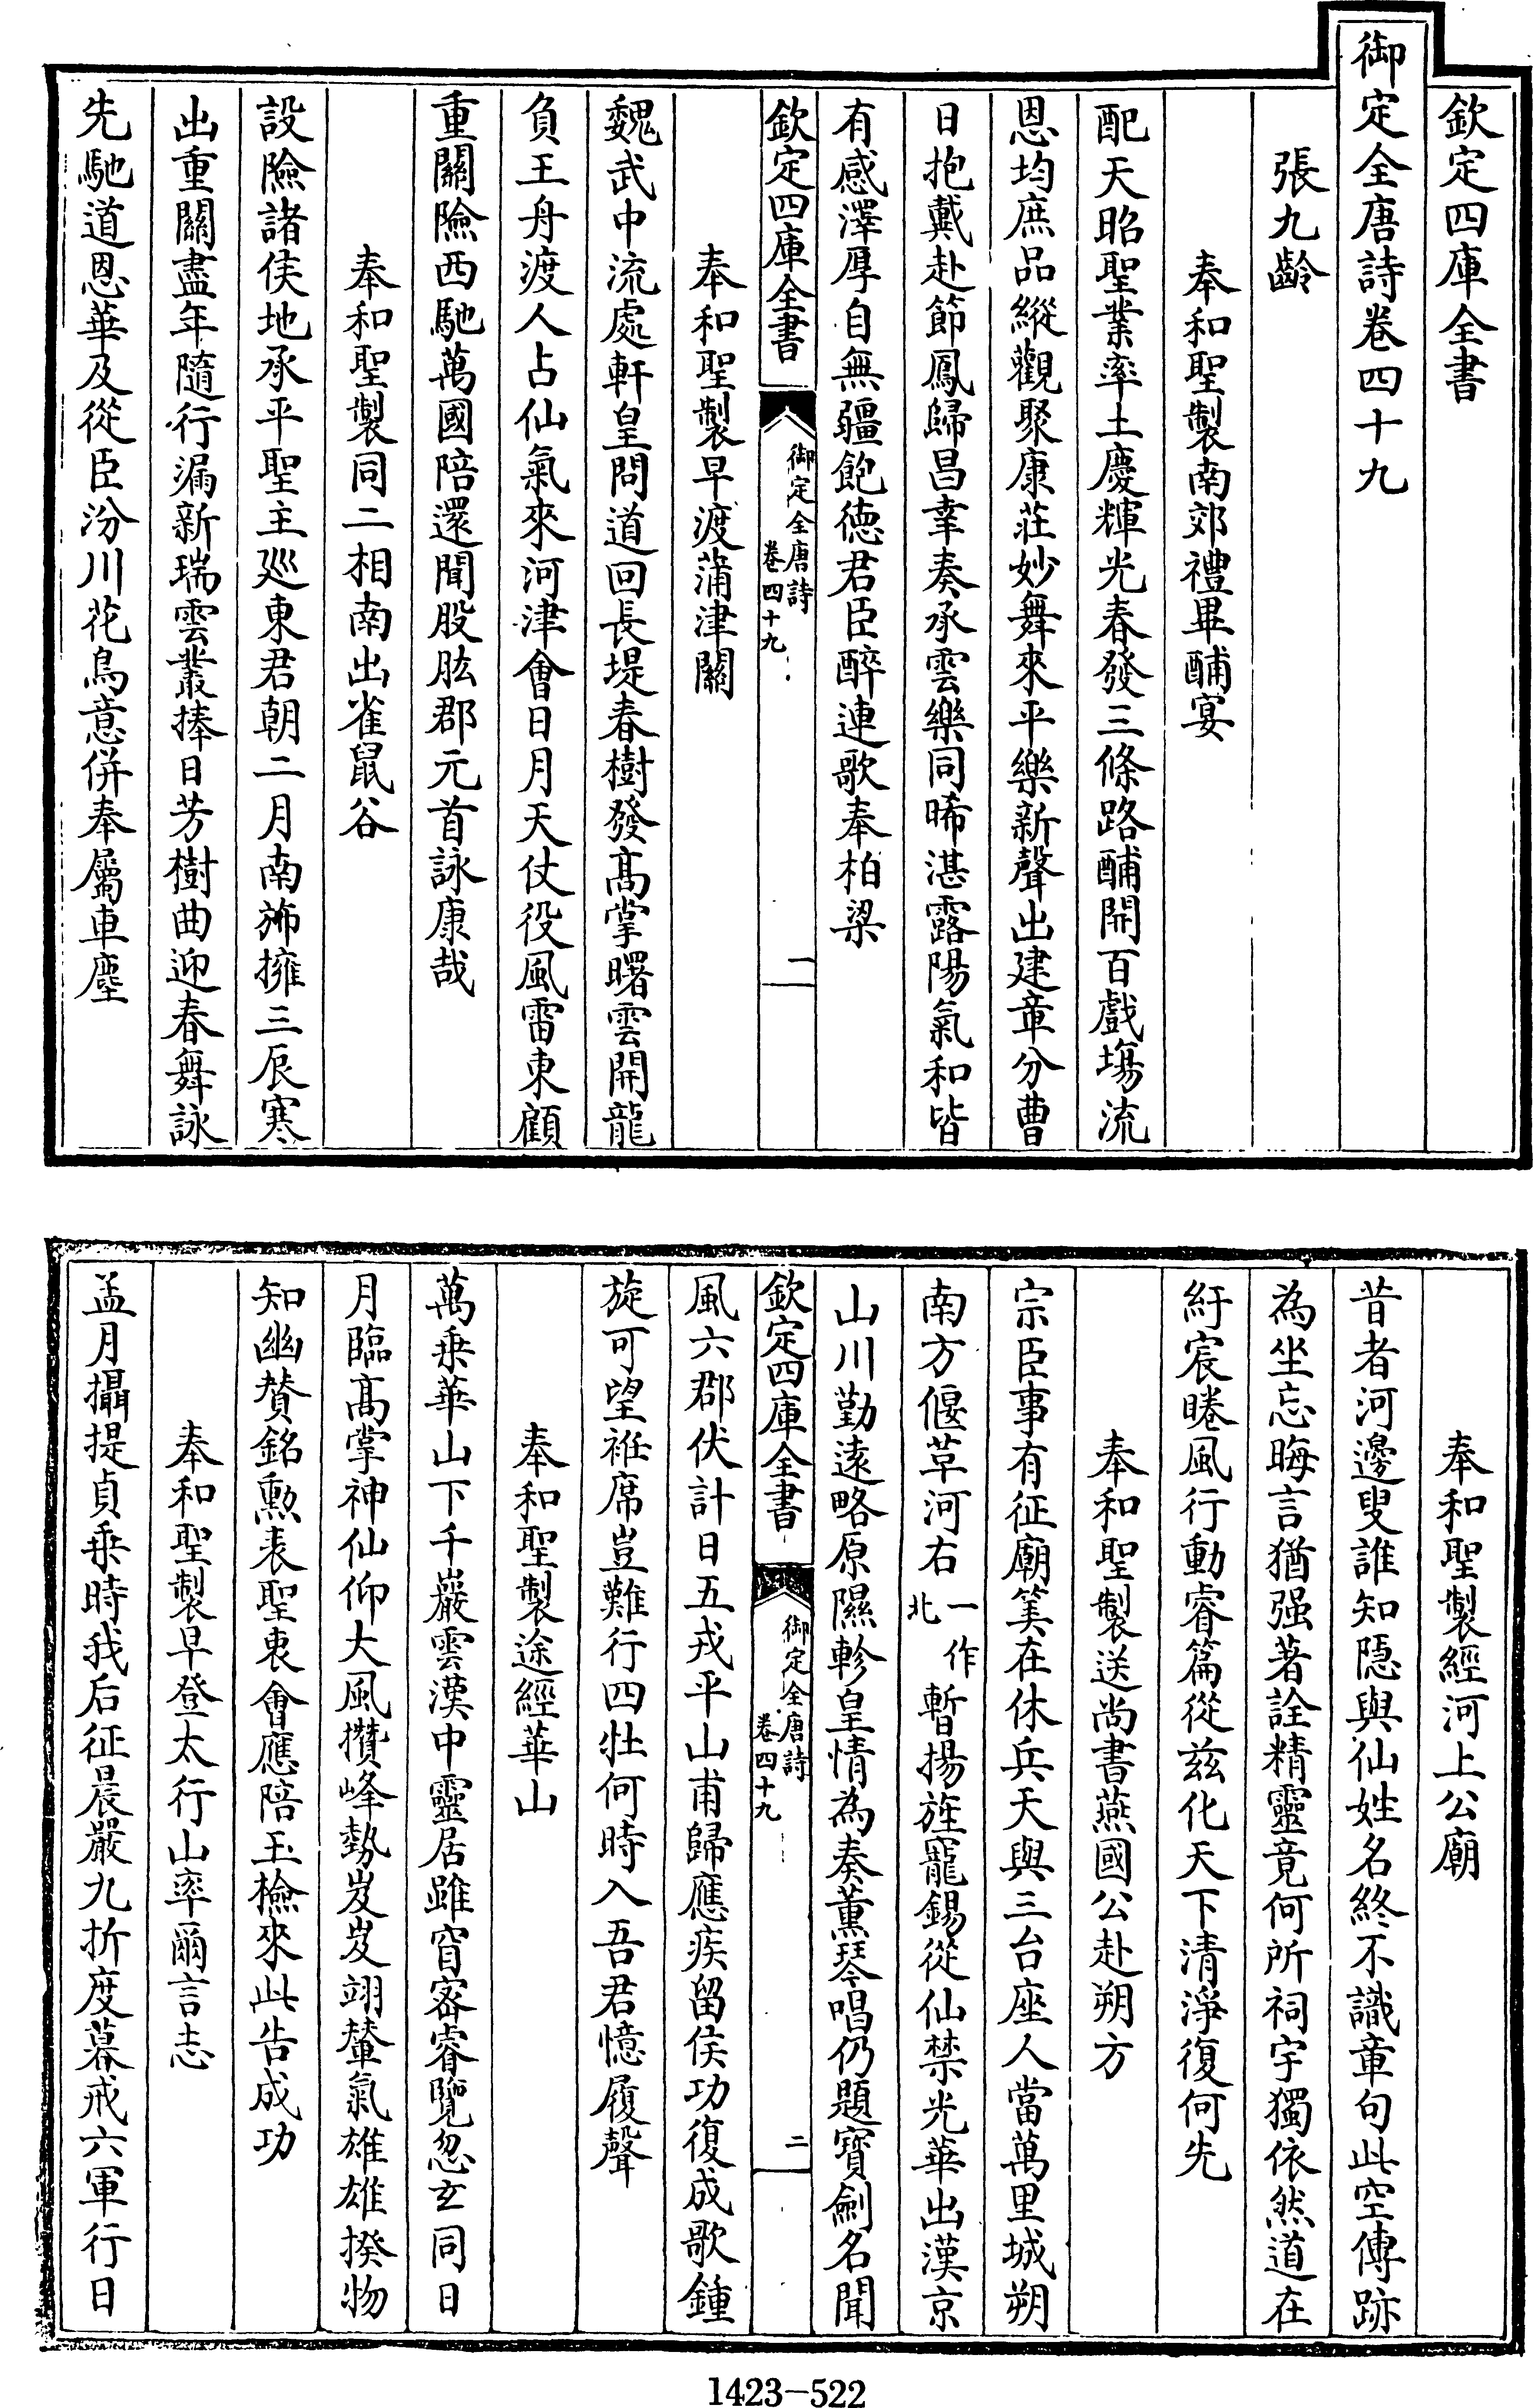 欽定四庫全書
御定全唐詩卷四十九
張九齡
奉和聖製南郊禮畢酺宴
配天昭聖業率土慶輝光春發三條路酺開百戲塲流
恩均庶品縱觀聚康莊妙舞來平樂新聲出建章分曹
日抱戴赴節鳳歸昌幸奏承雲樂同晞湛露陽氣和皆
有感澤厚自無疆飽德君臣醉連歌奉柏梁
欽定四庫全書
御定全唐詩
卷四十九
一
奉和聖製早渡蒲津關
魏武中流處軒皇問道回長堤春樹發髙掌曙雲開龍
負王舟渡人占仙氣來河津會日月天仗役風雷東顧
重關險西馳萬國陪還聞股肱郡元首詠康哉
奉和聖製同二相南出雀鼠谷
設險諸侯地承平聖主廵東君朝二月南斾擁三辰寒
出重關盡年隨行漏新瑞雲叢捧日芳樹曲迎春舞詠
先馳道恩華及從臣汾川花鳥意併奉屬車塵
奉和聖製經河上公廟
昔者河邊叟誰知隱與仙姓名終不識章句此空傳跡
為坐忘晦言猶强著詮精靈竟何所祠宇獨依然道在
紆宸睠風行動睿篇從兹化天下清淨復何先
奉和聖製送尚書燕國公赴朔方
宗臣事有征廟筭在休兵天與三台座人當萬里城朔
南方偃草河右一作北暫揚旌寵錫從仙禁光華出漢京
山川勤逺略原隰軫皇情為奏薰琴唱仍題寳劍名聞
欽定四庫全書
御定全唐詩
卷四十九
二
風六郡伏計日五戎平山甫歸應疾留侯功復成歌鍾
旋可望袵席豈難行四壯何時入吾君憶履聲
奉和聖製途經華山
萬乗華山下千巖雲漢中靈居雖窅密睿覽忽玄同日
月臨髙掌神仙仰大風攢峰勢岌岌翊輦氣雄雄揆物
知幽賛銘勲表聖衷會應陪玉檢來此告成功
奉和聖製早登太行山率爾言志
孟月攝提貞乗時我后征晨嚴九折度暮戒六軍行日
1423-522